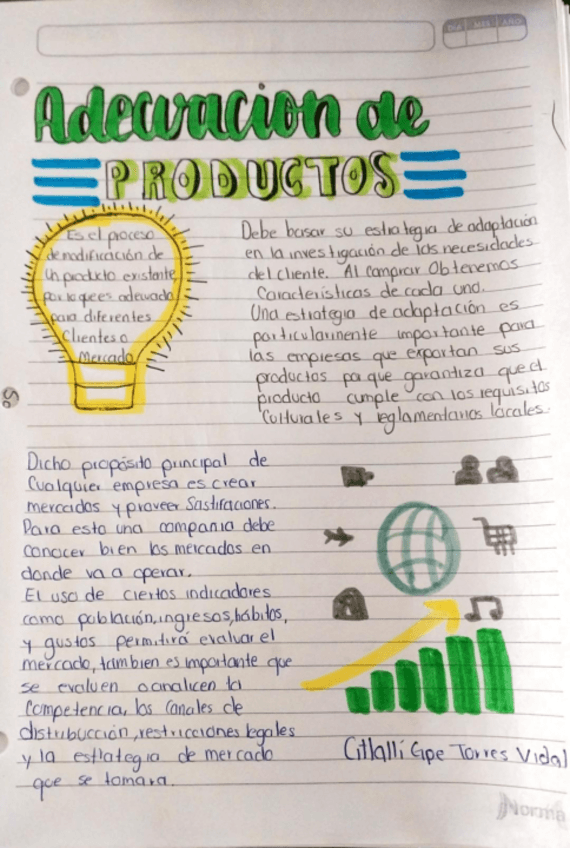 DIA MES AÑO
Adecuacion de
PRODUCTOS
Es el proceso
de modificación de
Un producto existente
por lo que es adecuado
para diferentes
Clientes o
Mercado
Debe basar su estrategia de adaptación
en la investigación de las necesidades
del cliente. Al comprar Obtenemos
Características de cada uno.
Una estrategia de adaptación es
particularmente importante para
las empresas que exportan sus
productos pa que garantiza que el
producto cumple con los requisitos
Culturales y reglamentarios locales.
Dicho propósito principal de
Cualquier empresa es crear
mercados y proveer Sastifaciones.
Para esto una compania debe
conocer bien los mercados en
donde va a operar.
El uso de ciertos indicadores
como población, ingresos, hábitos,
y gustos permitirá evaluar el
mercado, tambien es importante que
se evaluen o analicen la
Competencia, los Canales de
distribucción, restricciones legales
y la estrategia de mercado
que se tomara.
Citlalli Gpe Torres Vidal
Norma